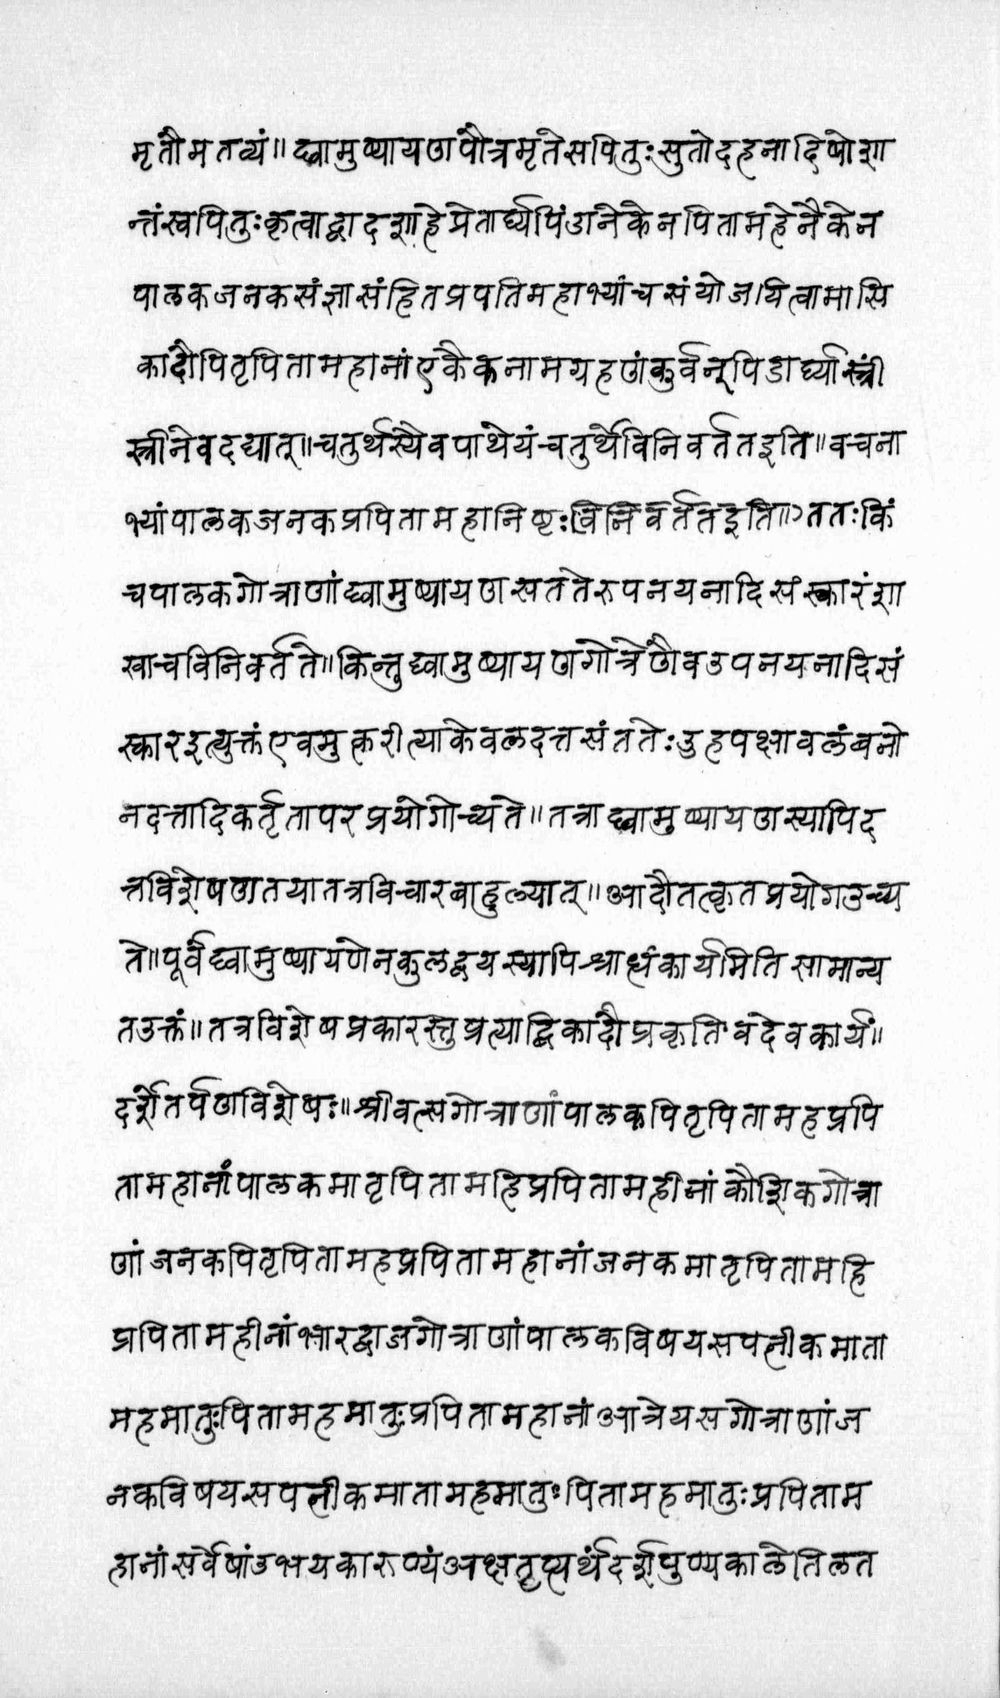 मृतौमतव्यं॥ द्व्यामुष्यायणपौत्रमृतेसपितुःसुतोदहनादिषोडशा
न्तंस्वपितुःकृत्वाद्वादशाहेप्रेतार्घ्यपिंडानेकेनपितामहेनैकेन
पालकजनकसंज्ञासंहितप्रपतिमहाभ्यांचसंयोजयित्वामासि
कादौपितृपितामहानांएकैकनामग्रहणंकुर्वन्पिडार्घ्यास्त्रीं
स्त्रीनेवदद्यात्॥चतुर्थस्यैवपाथेयंचतुर्थेविनिवर्ततइति॥वचना
भ्यांपालकजनकप्रपितामहानिष्टःविनिवर्ततइति॥ततःकिं
चपालकगोत्राणांद्व्यामुष्यायणसततेरुपनयनादिसंस्कारंशा
खाचविनिवर्तते॥किन्तुद्व्यामुष्यायणगोत्रेणैवउपनयनादिसं
स्कारइत्युक्तंएवमुक्तरीत्याकेवलदत्तसंततेःउहपक्षावलंबनो
नदत्तादिकर्तृतापरप्रयोगोच्यते॥तत्राद्व्यामुष्यायणस्यापिद
त्तविशेषणतयातत्रविचारबाहुल्यात्॥आदौतत्कृतप्रयोगउच्य
ते॥पूर्वंद्व्यामुष्यायणेनकुलद्वयस्यापिश्राध्धंकार्यमितिसामान्य
तउक्तं॥तत्रविशेषप्रकारस्तुप्रत्याब्दिकादौप्रकृतिवदेवकार्यं॥
दर्शेतर्पणविशेषः॥श्रीवत्सगोत्राणांपालकपितृपितामहप्रपि
तामहानांपालकमातृपितामहिप्रपितामहीनांकौशिकगोत्रा
णांजनकपितृपितामहप्रपितामहानांजनकमातृपितामहि
प्रपितामहीनांभारद्वाजगोत्राणांपालकविषयसपत्नीकमाता
महमातुःपितामहमातुःप्रपितामहानांआत्रेयसगोत्राणांज
नकविषयसपत्नीकमातामहमातुःपितामहमातुःप्रपिताम
हानांसर्वेषांउभयकारुण्यंअक्षतृप्त्यर्थंदर्शपुण्यकालेतिलत